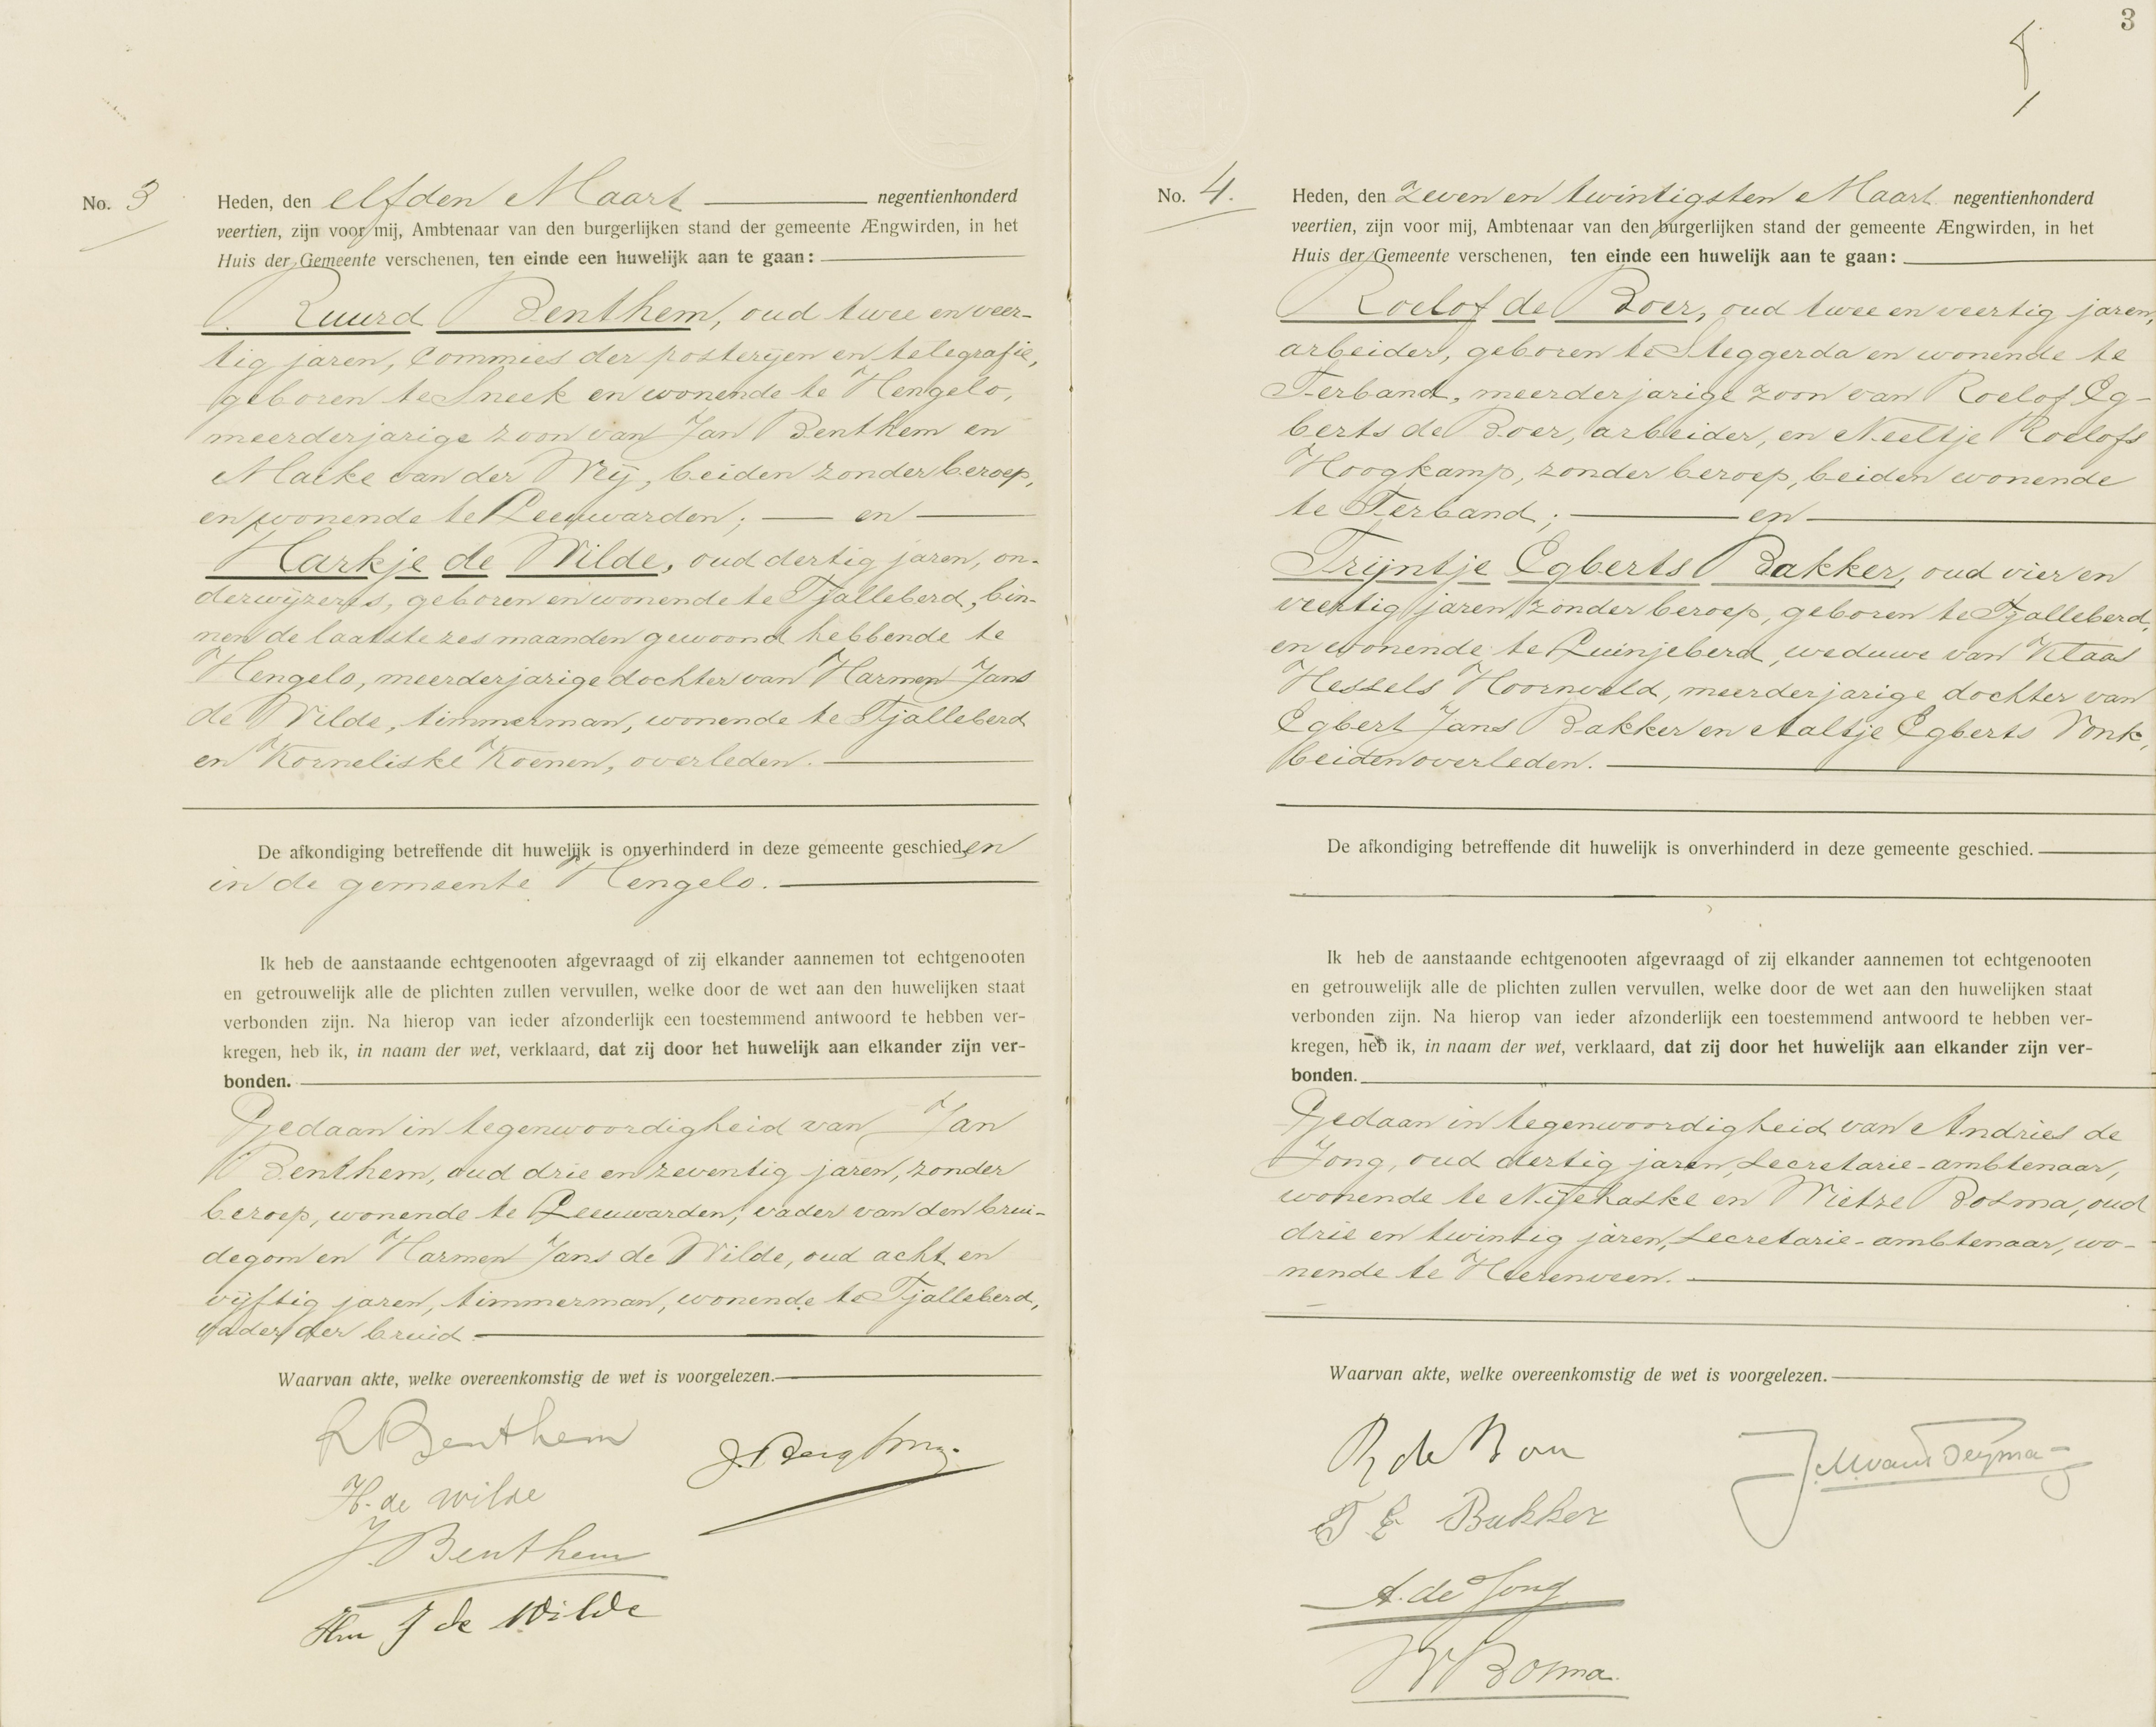 No. 3
Heden, den elfden Maart negentienhonderd
veertien, zijn voor mij, Ambtenaar van den burgerlijken stand der gemeente Ængwirden, in het
Huis der Gemeente verschenen, ten einde een huwelijk aan te gaan:
Ruurd Benthem, oud twee en veer-
tig jaren, Commies der posterijen en telegrafie,
geboren te Sneek en wonende te Hengelo,
meerderjarige zoon van Jan Benthem en
Maike van der Wij, beiden zonder beroep,
en wonende te Leeuwarden; en
Harkje de Wilde, oud dertig jaren, on-
derwijzeres, geboren en wonende te Tjalleberd, bin-
nen de laatste zes maanden gewoond hebbende te
Hengelo, meerderjarige dochter van Harmen Jans
de Wilde, timmerman, wonende te Tjalleberd
en Korneliske Koenen, overleden.
De afkondiging betreffende dit huwelijk is onverhinderd in deze gemeente geschied en
in de gemeente Hengelo.
Ik heb de aanstaande echtgenooten afgevraagd of zij elkander aannemen tot echtgenooten
en getrouwelijk alle de plichten zullen vervullen, welke door de wet aan den huwelijken staat
verbonden zijn. Na hierop van ieder afzonderlijk een toestemmend antwoord te hebben ver-
kregen, heb ik, in naam der wet, verklaard, dat zij door het huwelijk aan elkander zijn ver-
bonden.
Gedaan in tegenwoordigheid van Jan
Benthem, oud drie en zeventig jaren, zonder
beroep, wonende te Leeuwarden, vader van den brui-
degom en Harmen Jans de Wilde, oud acht en
vijftig jaren, timmerman, wonende te Tjalleberd,
vader der bruid.
Waarvan akte, welke overeenkomstig de wet is voorgelezen.
R Benthem
H. de Wilde
J. Benthem
Hm J de Wilde
3
No. 4.
Heden, den zeven en twintigsten Maart negentienhonderd
veertien, zijn voor mij, Ambtenaar van den burgerlijken stand der gemeente Ængwirden, in het
Huis der Gemeente verschenen, ten einde een huwelijk aan te gaan:
Roelof de Boer, oud twee en veertig jaren,
arbeider, geboren te Steggerda en wonende te
Terband, meerderjarige zoon van Roelof Eg-
berts de Boer, arbeider, en Neeltje Roelofs
Hoogkamp, zonder beroep, beiden wonende
te Terband; en
Trijntje Egberts Bakker, oud vier en
veertig jaren, zonder beroep, geboren te Tjalleberd,
en wonende te Luinjeberd, weduwe van Klaas
Hessels Hoornveld, meerderjarige dochter van
Egbert Jans Bakker en Aaltje Egberts Vonk,
beiden overleden.
De afkondiging betreffende dit huwelijk is onverhinderd in deze gemeente geschied.
Ik heb de aanstaande echtgenooten afgevraagd of zij elkander aannemen tot echtgenooten
en getrouwelijk alle de plichten zullen vervullen, welke door de wet aan den huwelijken staat
verbonden zijn. Na hierop van ieder afzonderlijk een toestemmend antwoord te hebben ver-
kregen, heb ik, in naam der wet, verklaard, dat zij door het huwelijk aan elkander zijn ver-
bonden.
Gedaan in tegenwoordigheid van Andries de
Jong, oud dertig jaren, secretarie-ambtenaar,
wonende te Nijehaske en Wietze Bosma, oud
drie en twintig jaren, secretarie-ambtenaar, wo-
nende te Heerenveen.
Waarvan akte, welke overeenkomstig de wet is voorgelezen.
R de Boer
T E Bakker
A. de Jong
W Bosma